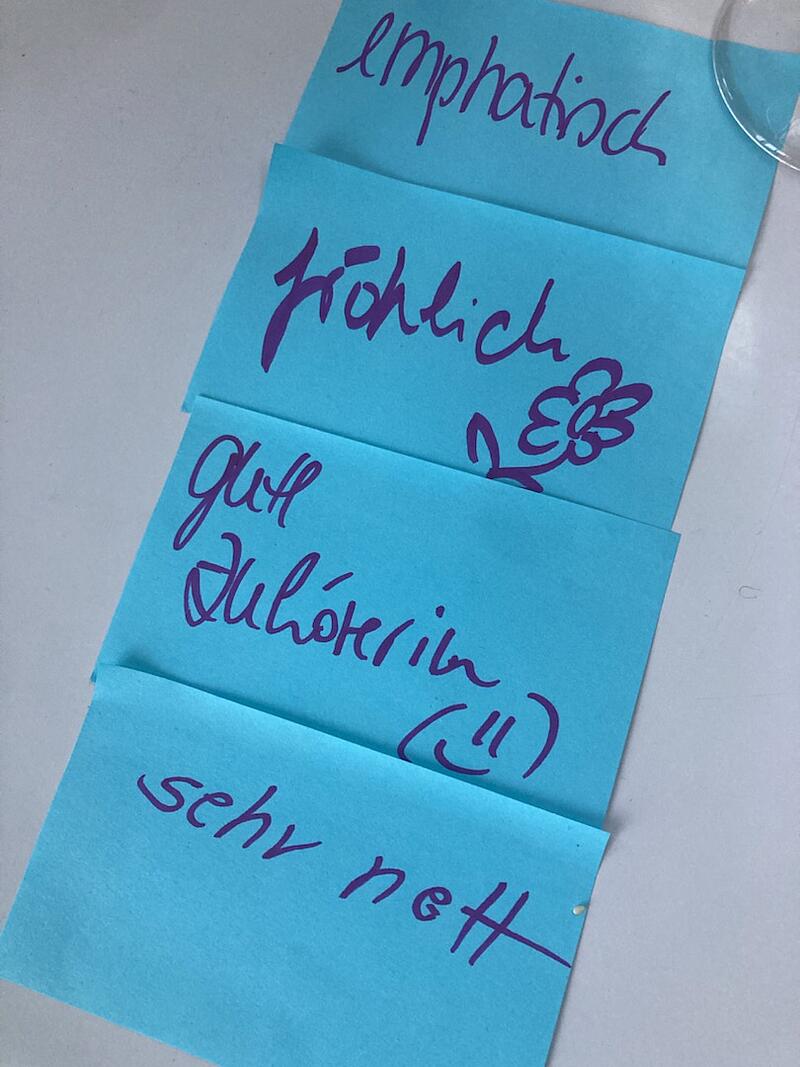 emphatisch
fröhlich
gute
Zuhörerin
sehr nett